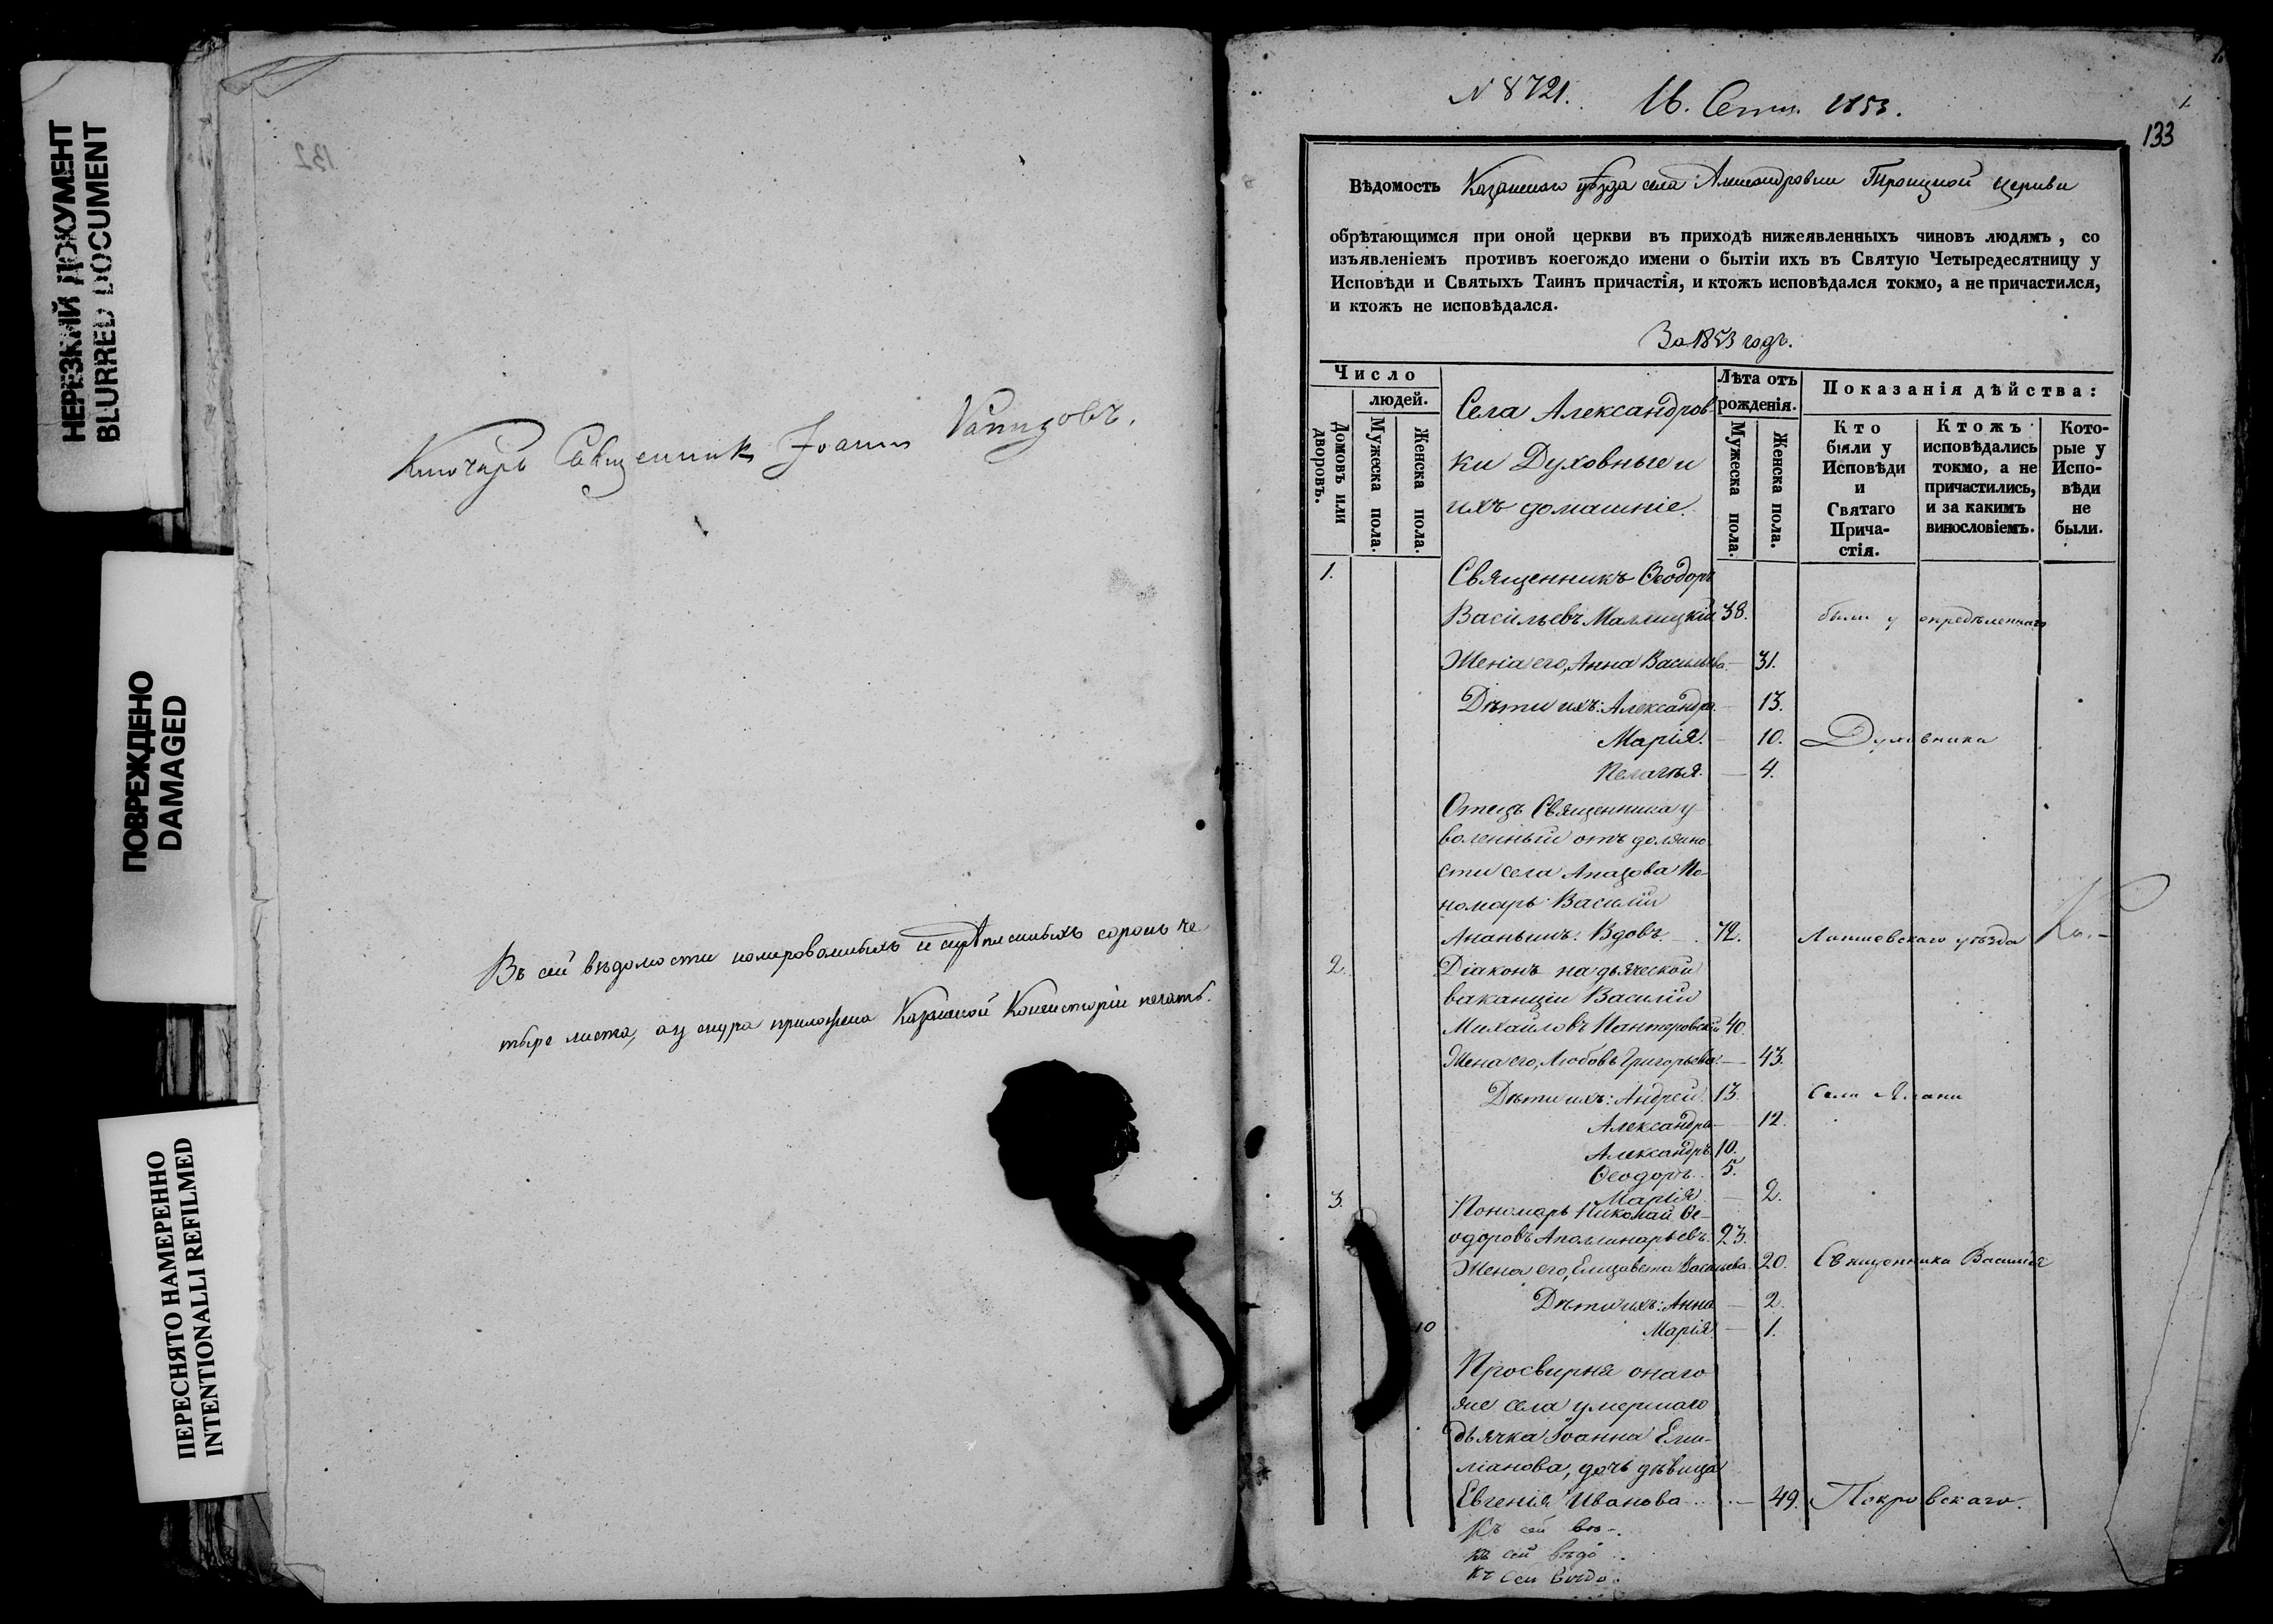 НЕРЕЗКИЙ ДОКУМЕНТ
BLURRED DOCUMENT
ПОВРЕЖДЕНО
DAMAGED
ПЕРЕСНЯТО НАМЕРЕННО
INTENTIONALLI REFILMED
132
Ключарь Священникъ Іоаннъ
Въ сей вѣдомости номерованныхъ и скрѣпленныхъ сорокъ че
тыре листа, а у шнура приложена Казанской Консисторіи печать.
N 8721. 16. Сент. 1853.
1
133
Вѣдомость Казанскаго уѣзда села Александровки Троицкой церкви
обрѣтающимся при оной церкви въ приходѣ нижеявленныхъ чиновъ людямъ, со
изъявленіемъ противъ коегождо имени о бытіи ихъ въ Святую Четыредесятницу у
Исповѣди и Святыхъ Таинъ причастія, и ктожъ исповѣдался токмо, а не причастился,
и ктожъ не исповѣдался.
За 1853 годъ.
Число
людей.
Домовъ или дворовъ.
Мужеска пола.
Женска пола.
Села Александров-
ки Духовные и
ихъ домашніе.
Лѣта отъ
рожденія.
Мужеска пола.
Женска пола.
Показанія дѣйства:
Кто
были у
Исповѣди
и
Святаго
Прича-
стія.
Ктожъ
исповѣдались
токмо, а не
причастились,
и за какимъ
винословіемъ.
Кото-
рые у
Испо-
вѣди
не
были.
1. Священникъ Ѳеодоръ
Васильевъ Малмицкій 38. были у опредѣленнаго
Жена его, Анна Васильева — 31.
Дѣти ихъ: Александра — 13.
Марія. — 10. Духовника
Пелагія. — 4.
Отецъ Священника у-
воленный отъ должно-
сти села Апазова По-
номарь Василій
Ананьинъ. Вдовъ. 72. Лаишевскаго уѣзда
2. Діаконъ на дьяческой
ваканціи Василій
Михайловъ Пантеровскій 40.
Жена его, Любовь Григорьева — 43.
Дѣти ихъ: Андрей. 13. Села
Александра — 12.
Александръ 10.
Ѳеодоръ. 5.
Марія — 2.
3. Пономарь Николай Ѳе-
одоровъ Аполлинарьевъ. 23.
Жена его, Елизавета Васильева. 20. Священника Василія
Дѣти ихъ: Анна — 2.
10 Марія — 1.
Просвирня онаго
же села умершаго
дьячка Іоанна Еми-
ліанова, дочь дѣвица
Евгенія Иванова — 49. Покровскаго.
Къ сей вѣ-
къ сей вѣдо
къ сей вѣдо.